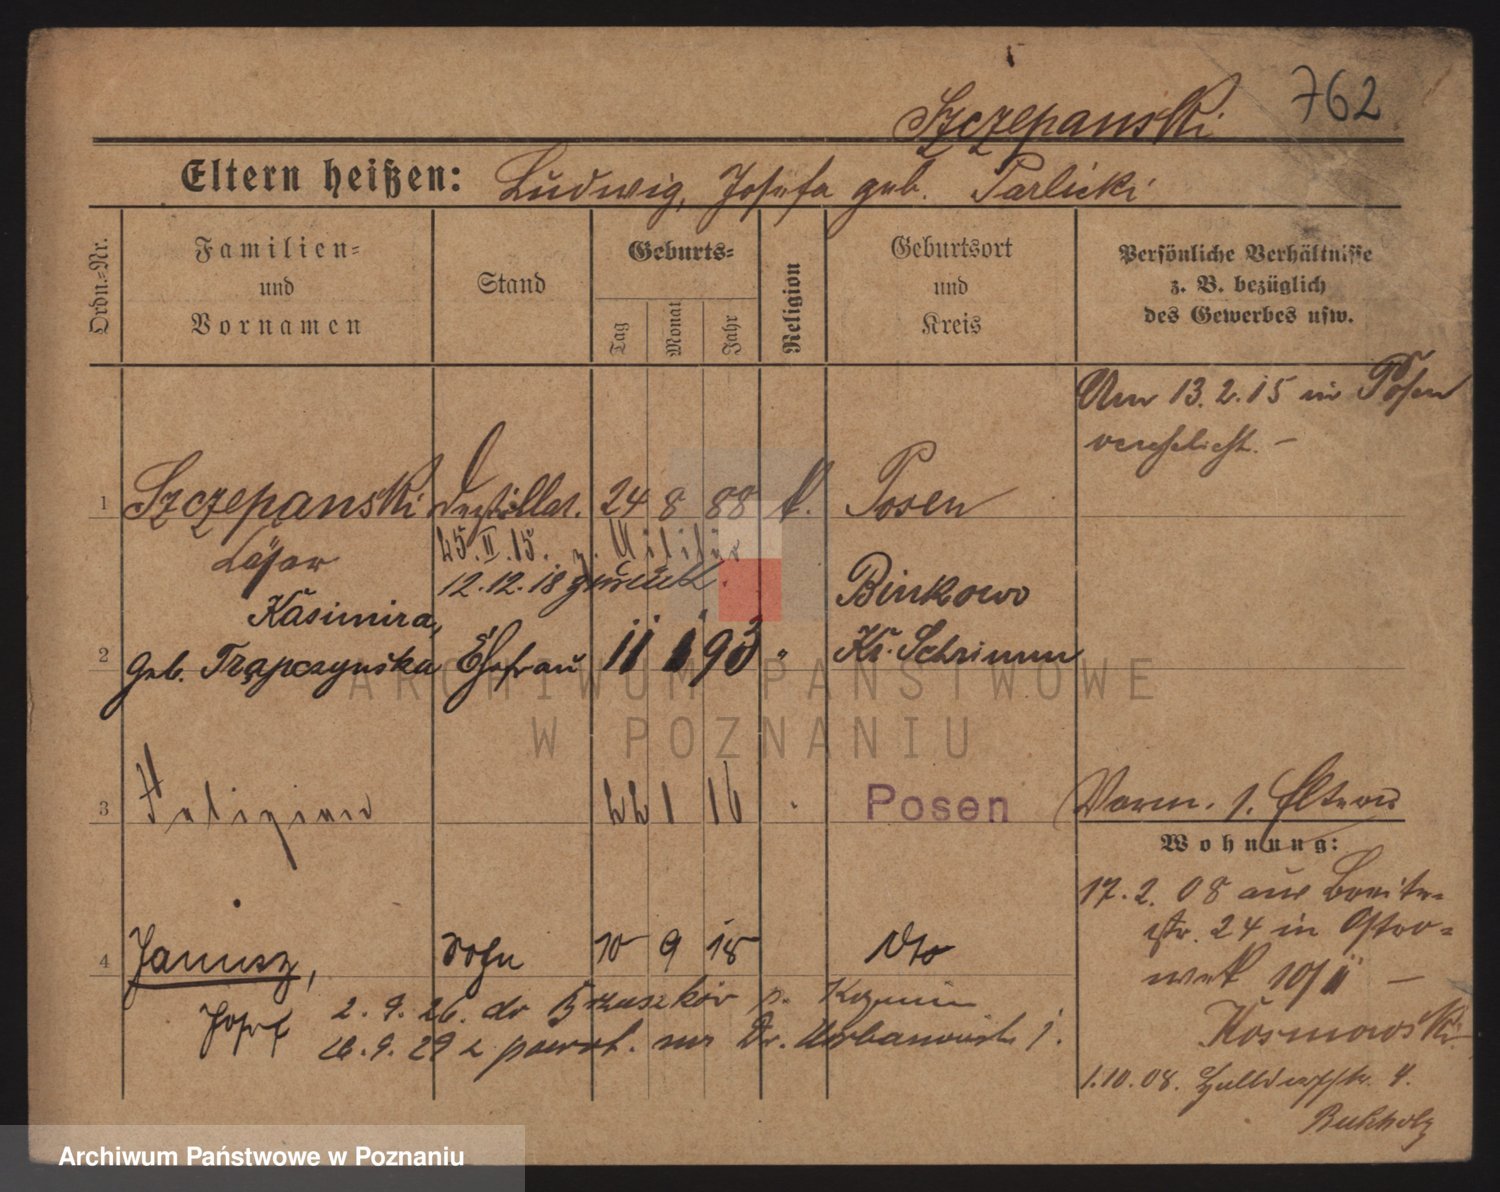 762
Szczepanski
Eltern heißen: Ludwig, Josefa geb. Parlicki
Ordn.-Nr.
Familien-
und
Vornamen
Stand
Geburts-
Tag
Monat
Jahr
Religion
Geburtsort
und
Kreis
Persönliche Verhältnisse
z. B. bezüglich
des Gewerbes usw.
Am 13.2.15 in Posen
verehelicht. –
1 Szczepanski Destillat. 24 8 88 k. Posen
25.II.15. z. Militär
12.12.18 zurück.
Kasimira,
2 geb. Trąpczyńska Ehefrau 11 1 93 "
Binkowo
Kr. Schrimm
3 Felizian 22 1 16 Posen
Vorm. s. Eltern
Wohnung:
17.2.08 aus Breite-
str. 24 in Ostro-
wek 10/11 –
Kosmowski
1.10.08. 4.
Buchholz
4 Janusz, Sohn 10 9 18 dto
Josef
2.9.26. do p.
29 z powrot. 1.
ARCHIWUM PAŃSTWOWE
W POZNANIU
Archiwum Państwowe w Poznaniu